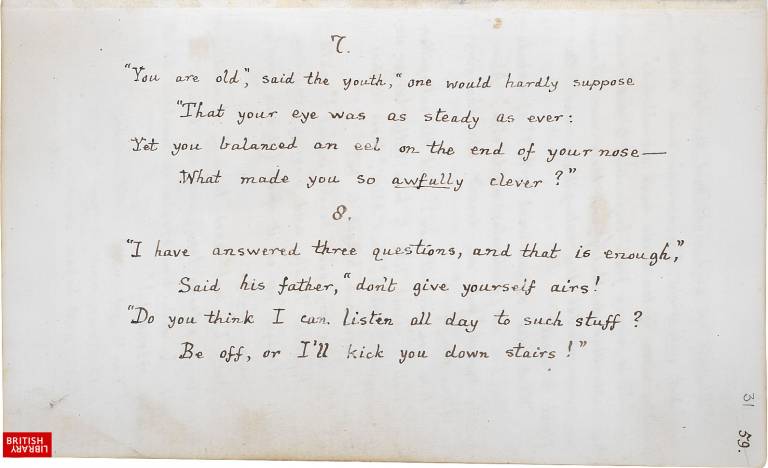 7.
"You are old," said the youth, "one would hardly suppose
"That your eye was as steady as ever:
Yet you balanced an eel on the end of your nose—
What made you so awfully clever?"
8.
"I have answered three questions, and that is enough,"
Said his father, "don't give yourself airs!
"Do you think I can listen all day to such stuff?
Be off, or I'll kick you down stairs!"
31
59.
BRITISH
LIBRARY